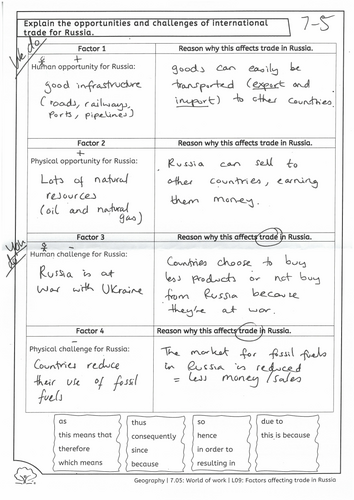 Explain the opportunities and challenges of international
trade for Russia.
7-5
We do
Factor 1
Reason why this affects trade in Russia.
+
Human opportunity for Russia:
good infrastructure
(roads, railways,
ports, pipelines)
goods can easily be
transported (export and
import) to other countries.
Factor 2
Reason why this affects trade in Russia.
+
Physical opportunity for Russia:
Lots of natural
resources
(oil and natural
gas)
Russia can sell to
other countries, earning
them money.
You do
Factor 3
Reason why this affects trade in Russia.
-
Human challenge for Russia:
Russia is at
war with Ukraine
Countries choose to buy
less products or not buy
from Russia because
they're at war.
Factor 4
Reason why this affects trade in Russia.
-
Physical challenge for Russia:
Countries reduce
their use of fossil
fuels
The market for fossil fuels
in Russia is reduced
= less money/sales
as
this means that
therefore
which means
thus
consequently
since
because
so
hence
in order to
resulting in
due to
this is because
Geography | 7.05: World of work | L09: Factors affecting trade in Russia